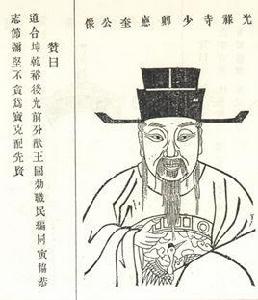 光祿寺少卿應奎公像
贊曰
道合坤乾裕後光前分猷王國勤職民編同寅協恭
志節彌堅不貪爲寶克配先賢